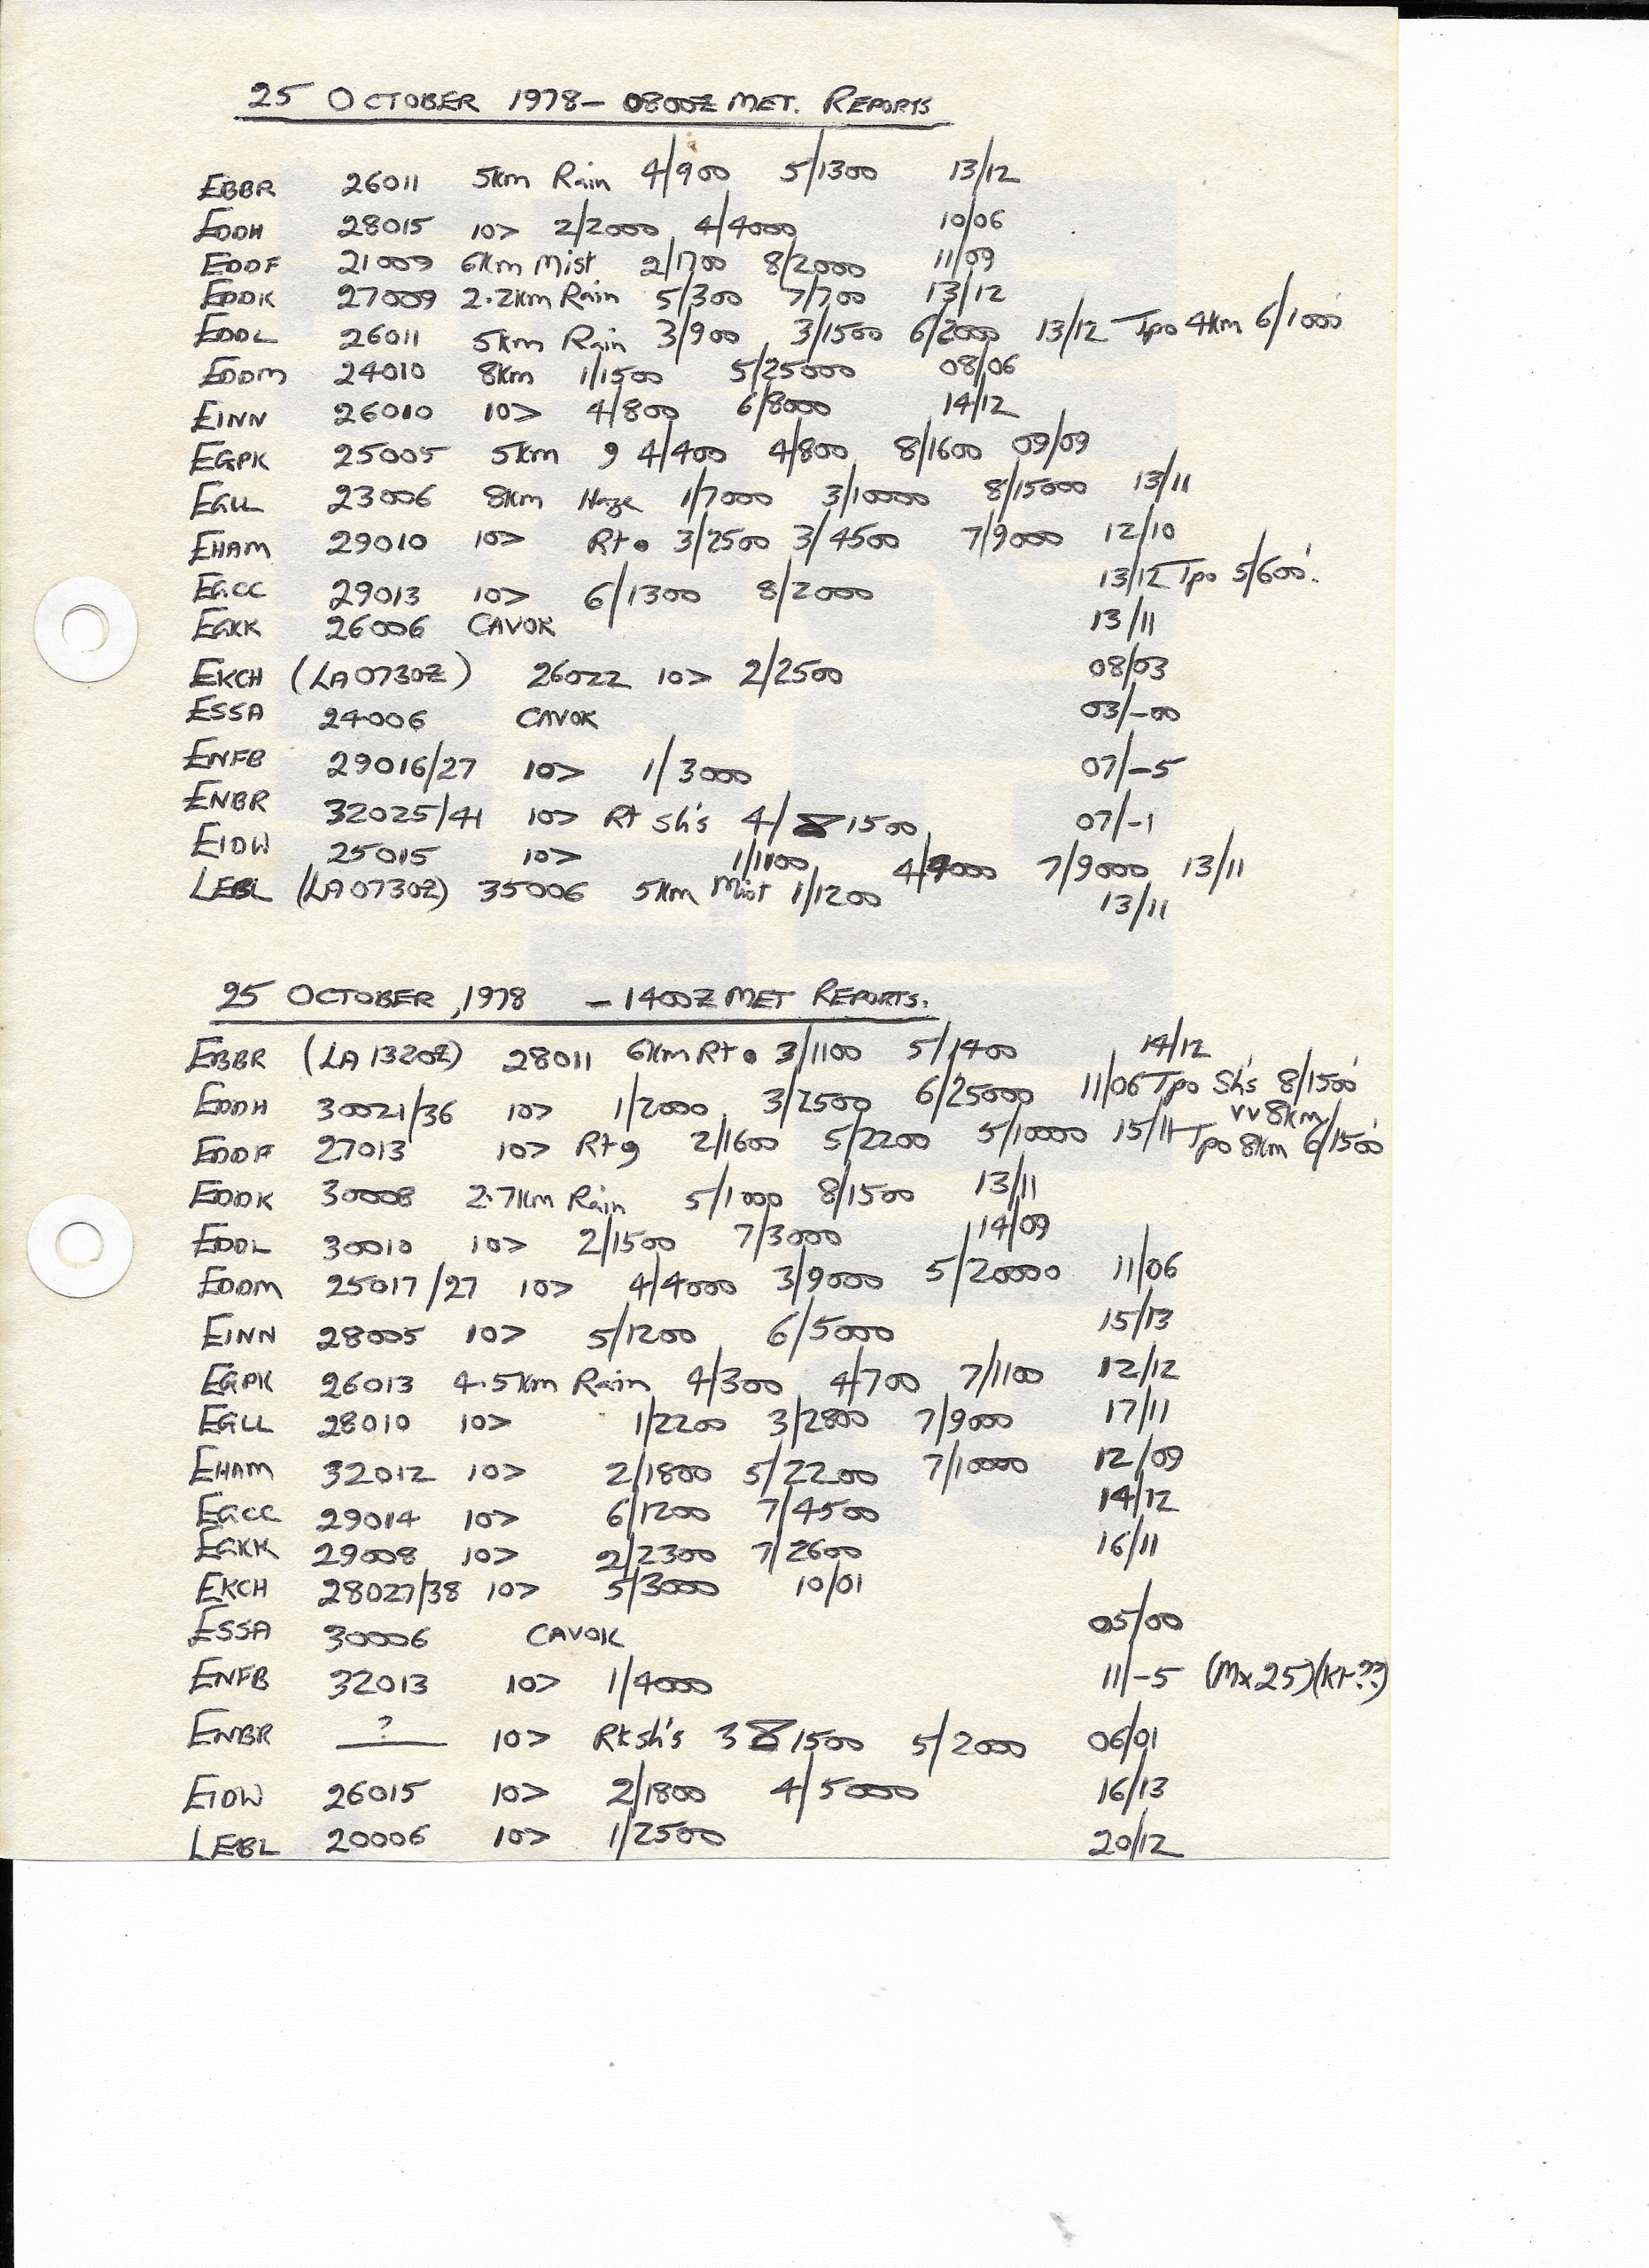 25 OCTOBER 1978 - 0800Z MET. REPORTS
EBBR 26011 5km Rain 4/900 5/1300 13/12
EDDH 28015 10> 2/2000 4/4000 10/06
EDDF 21009 6km Mist 2/1700 8/2000 11/09
EDDK 27009 2.2km Rain 5/300 7/700 13/12
EDDL 26011 5km Rain 3/900 3/1500 6/2000 13/12 Tpo 4km 6/1000'
EDDM 24010 8km 1/1500 5/25000 08/06
EINN 26010 10> 4/800 6/8000 14/12
EGPK 25005 5km 9 4/400 4/800 8/1600 09/09
EGLL 23006 8km Haze 1/7000 3/10000 8/15000 13/11
EHAM 29010 10> Rt • 3/2500 3/4500 7/9000 12/10
EGCC 29013 10> 6/1300 8/2000 13/12 Tpo 5/600'.
EGKK 26006 CAVOK 13/11
EKCH (LA 0730Z) 26022 10> 2/2500 08/03
ESSA 24006 CAVOK 03/-00
ENFB 29016/27 10> 1/3000 07/-5
ENBR 32025/41 10> Rt sh's 4/ 1500 07/-1
EIDW 25015 10> 1/1100 4/4000 7/9000 13/11
LEBL (LA 0730Z) 35006 5km Mist 1/1200 13/11
25 OCTOBER, 1978 - 1400Z MET REPORTS.
EBBR (LA 1320Z) 28011 6km Rt • 3/1100 5/1400 14/12
EDDH 30021/36 10> 1/2000 3/2500 6/25000 11/06 Tpo Sh's 8/1500'
vv 8km/
EDDF 27013 10> Rt 9 2/1600 5/2200 5/10000 15/11 Tpo 8km 6/1500'
EDDK 30008 2.7km Rain 5/1000 8/1500 13/11
EDDL 30010 10> 2/1500 7/3000 14/09
EDDM 25017/27 10> 4/4000 3/9000 5/20000 11/06
EINN 28005 10> 5/1200 6/5000 15/13
EGPK 26013 4.5km Rain 4/300 4/700 7/1100 12/12
EGLL 28010 10> 1/2200 3/2800 7/9000 17/11
EHAM 32012 10> 2/1800 5/2200 7/10000 12/09
EGCC 29014 10> 6/1200 7/4500 14/12
EGKK 29008 10> 2/2300 7/2600 16/11
EKCH 28027/38 10> 5/3000 10/01
ESSA 30006 CAVOK 05/00
ENFB 32013 10> 1/4000 11/-5 (Mx 25)(Kt??)
ENBR ? 10> Rt sh's 3 8/1500 5/2000 06/01
EIDW 26015 10> 2/1800 4/5000 16/13
LEBL 20006 10> 1/2500 20/12